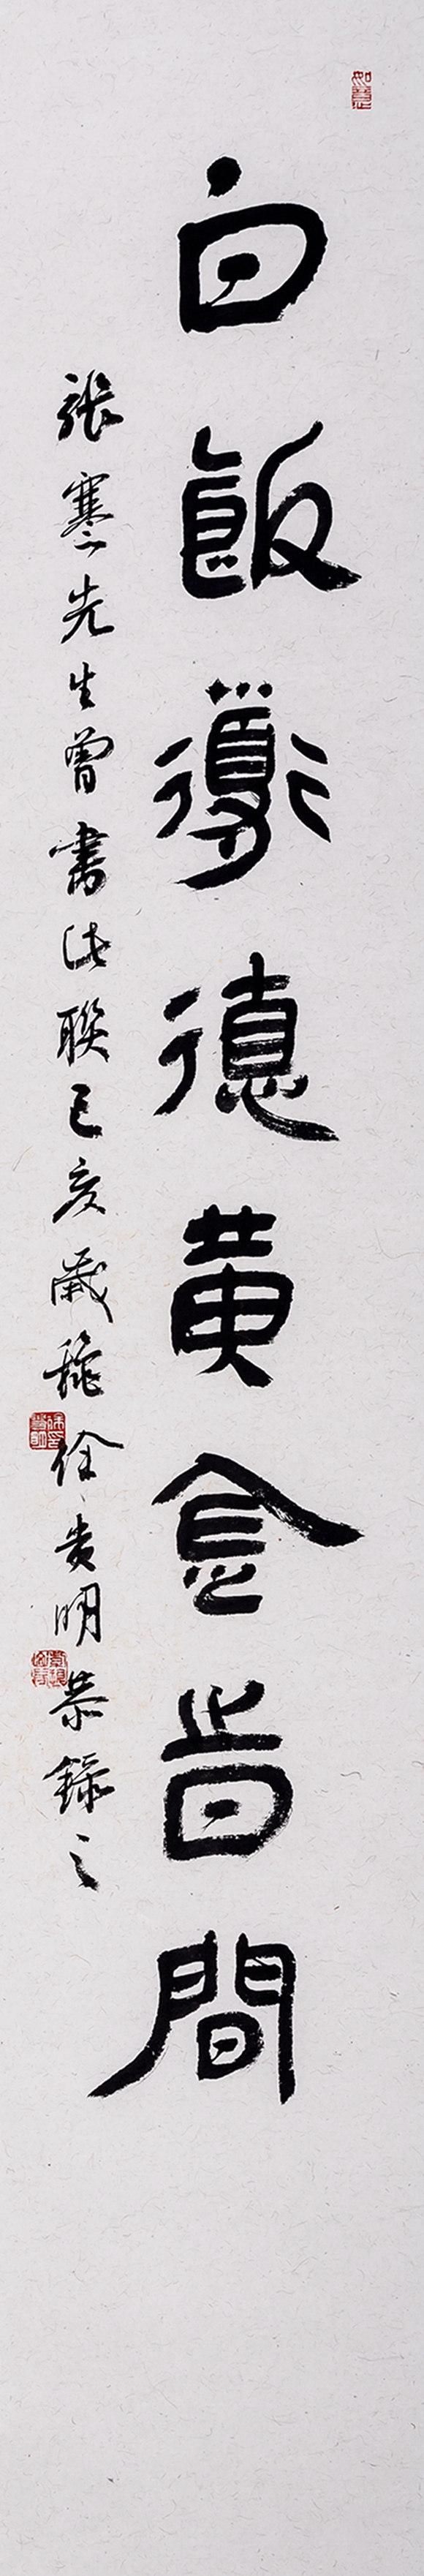 白飯道德黄金旹間
張謇先生曾書此聯己亥歲龝徐貴明恭錄之